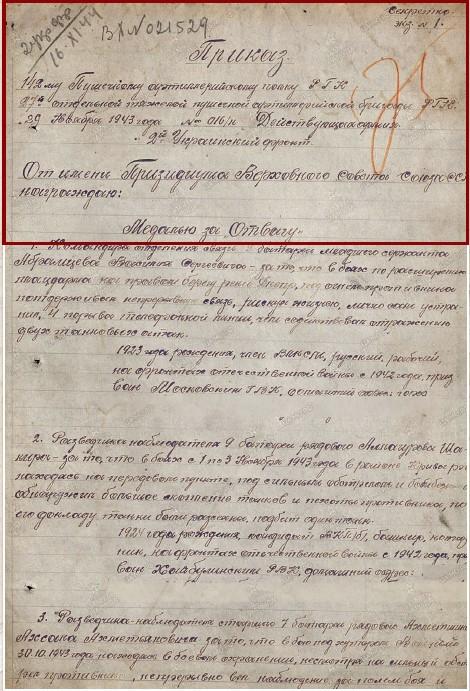 Секретно.
экз. N 1.
ВХ N 021529
16 XI 44
Приказ.
142му Пушечному артиллерийскому полку РГК
27й отдельной тяжелой пушечной артиллерийской бригады РГК.
29 Ноября 1943 года № 016/н Действующая армия.
2й Украинский фронт.
От имени Президиума Верховного Совета Союза ССР
награждаю:
Медалью за Отвагу
1. Командира отделения связи батареи младшего сержанта
Василия Сергеевича - за то, что в боях по расширению
плацдарма на правом берегу реки Днепр, под огнем противника
поддерживал непрерывную связь, рискуя жизнью, лично сам устра-
нил порывов телефонной линии, чем содействовал отражению
двух танковых атак.
1923 года рождения, член ВЛКСМ, русский, рабочий,
на фронтах отечественной войны с 1942 года, приз
ван Московским ГВК,
2. Разведчика-наблюдателя 9 батареи рядового
- за то, что в боях с 1 по 3 Ноября 1943 года в районе
находясь на передовом пункте, под сильным обстрелом и
обнаружил большое скопление танков и пехоты противника, по
его докладу танки были рассеяны, подбит один танк.
1924 года рождения, кандидат ВКП/б/, башкир,
на фронтах отечественной войны с 1942 года, при
зван Хайбулинским РВК, домашний адрес:
3. Разведчика-наблюдателя старшего 7 батареи рядового
за то, что в бою под хутором
30.10.1943 года находясь в боевом охранении, несмотря на
противника, непрерывно вел наблюдение за полем боя и